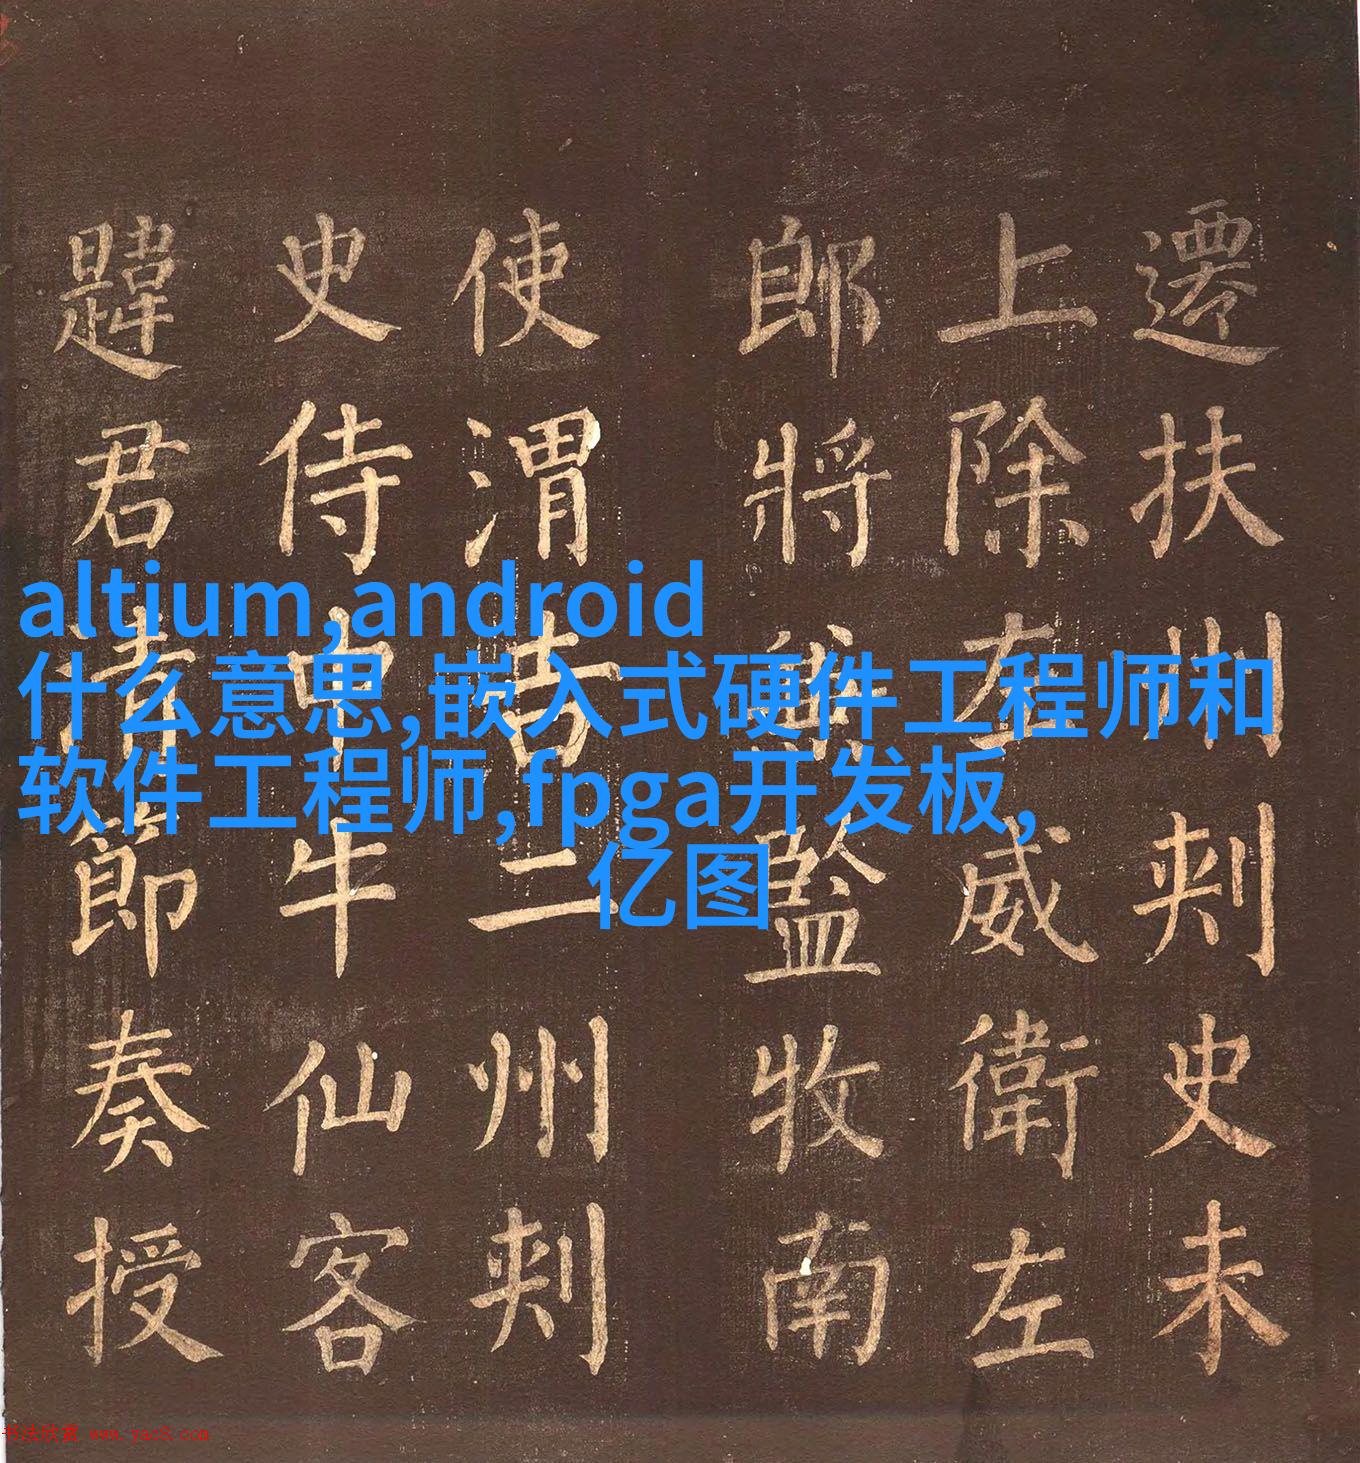 遷扶州刾史未
上除左威衛左
郎將監牧南
使渭吉二州刾
史侍中牛仙客
韙君清節奏授
altium,android
什么意思,嵌入式硬件工程师和
软件工程师,fpga开发板,
亿图
书法欣赏 www.yac8.com